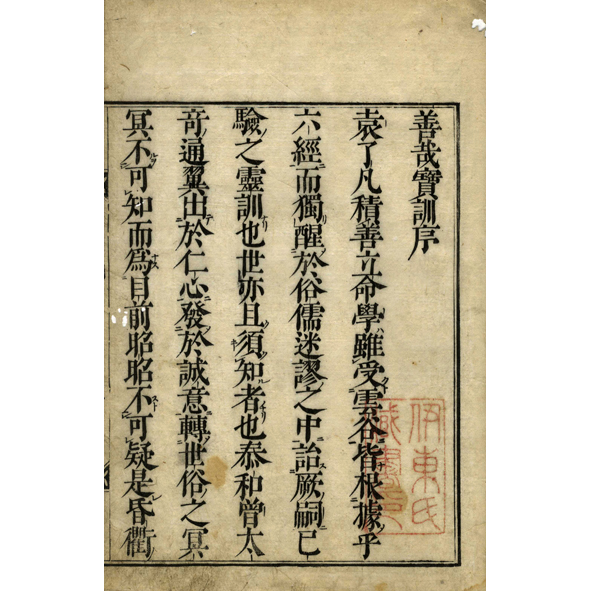 善哉寶訓序
袁了凡積善立命學雖受雲谷皆根據乎
六經而獨醒於俗儒迷謬之中詒厥嗣已
驗之靈訓也世亦且須知者也泰和曾太
奇通翼由於仁心發於誠意轉世俗之冥
冥不可知而爲目前昭昭不可疑是昏衢
伊東氏
藏書印